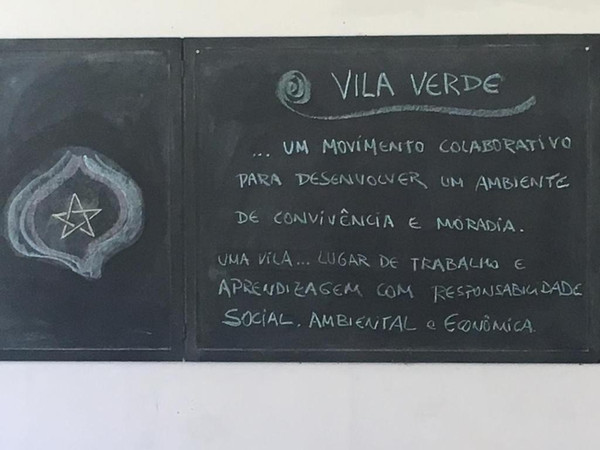 VILA VERDE
... UM MOVIMENTO COLABORATIVO
PARA DESENVOLVER UM AMBIENTE
DE CONVIVÊNCIA E MORADIA.
UMA VILA... LUGAR DE TRABALHO E
APRENDIZAGEM COM RESPONSABILIDADE
SOCIAL, AMBIENTAL e ECONÔMICA.